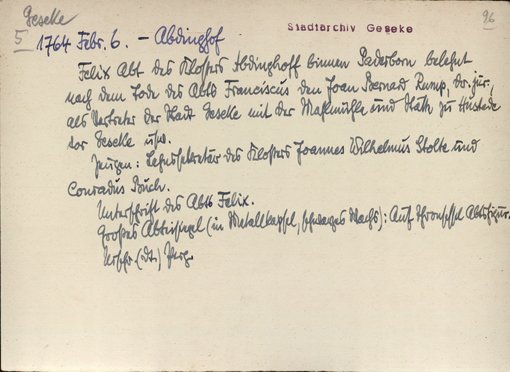 Geseke
96
5
Stadtarchiv Geseke
1764 Febr. 6. – Abdinghof
Felix Abt des Klosters Abdinghoff binnen Paderborn belehnt
nach dem Tode des Abts Franciscus den Joan Bernard Rump, Dr. jur.,
als Vertreter der Stadt Geseke mit der Mahlmühle und Stätte zu Hustede
vor Geseke usw.
Zeugen: Lehnssekretär des Klosters Joannes Wilhelmus Stolte und
Conradus
Unterschrift des Abts Felix.
Großes Abteisiegel (in Metallkapsel, schwarzes Wachs): Auf Thronsessel Abtsfigur.
Urschr. (dt.) Perg.